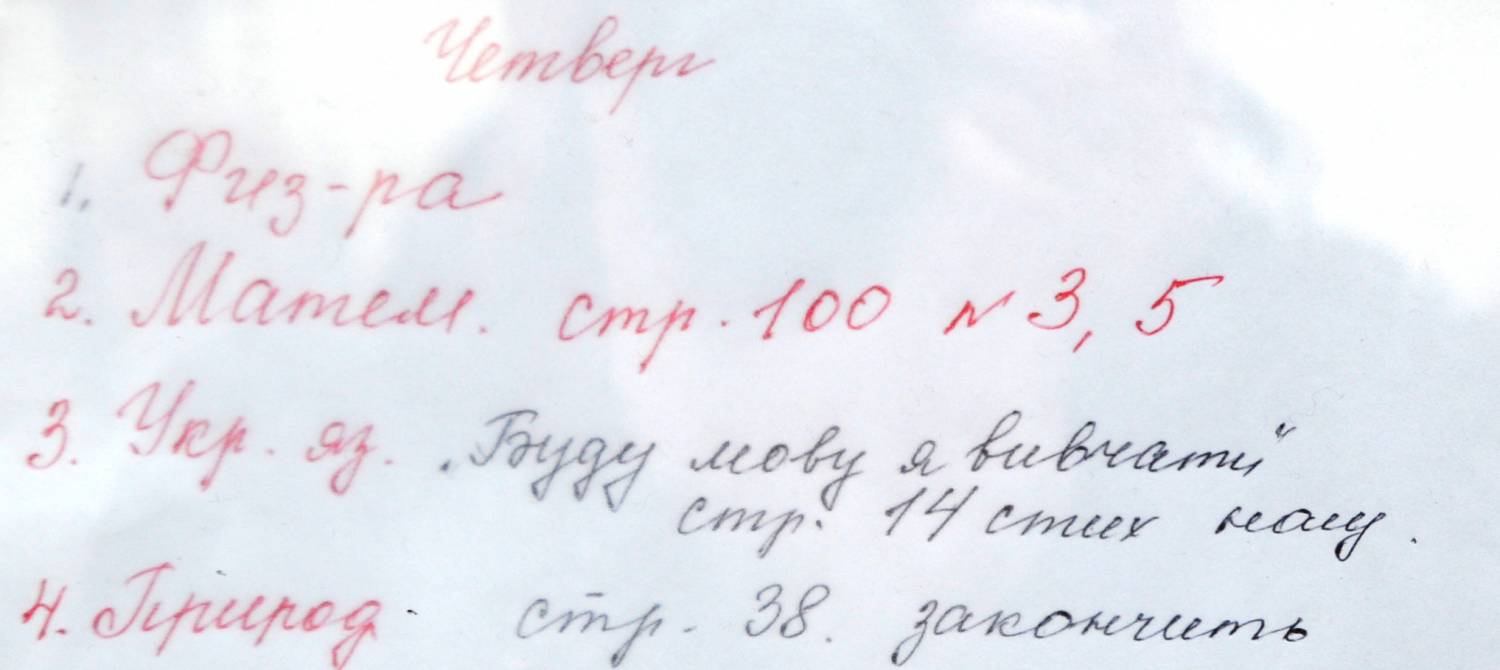 Четверг
1. Физ-ра
2. Матем. стр. 100 № 3, 5
3. Укр. яз. „Буду мову я вивчати“
стр. 14 стих наиз.
4. Природ. стр. 38. закончить